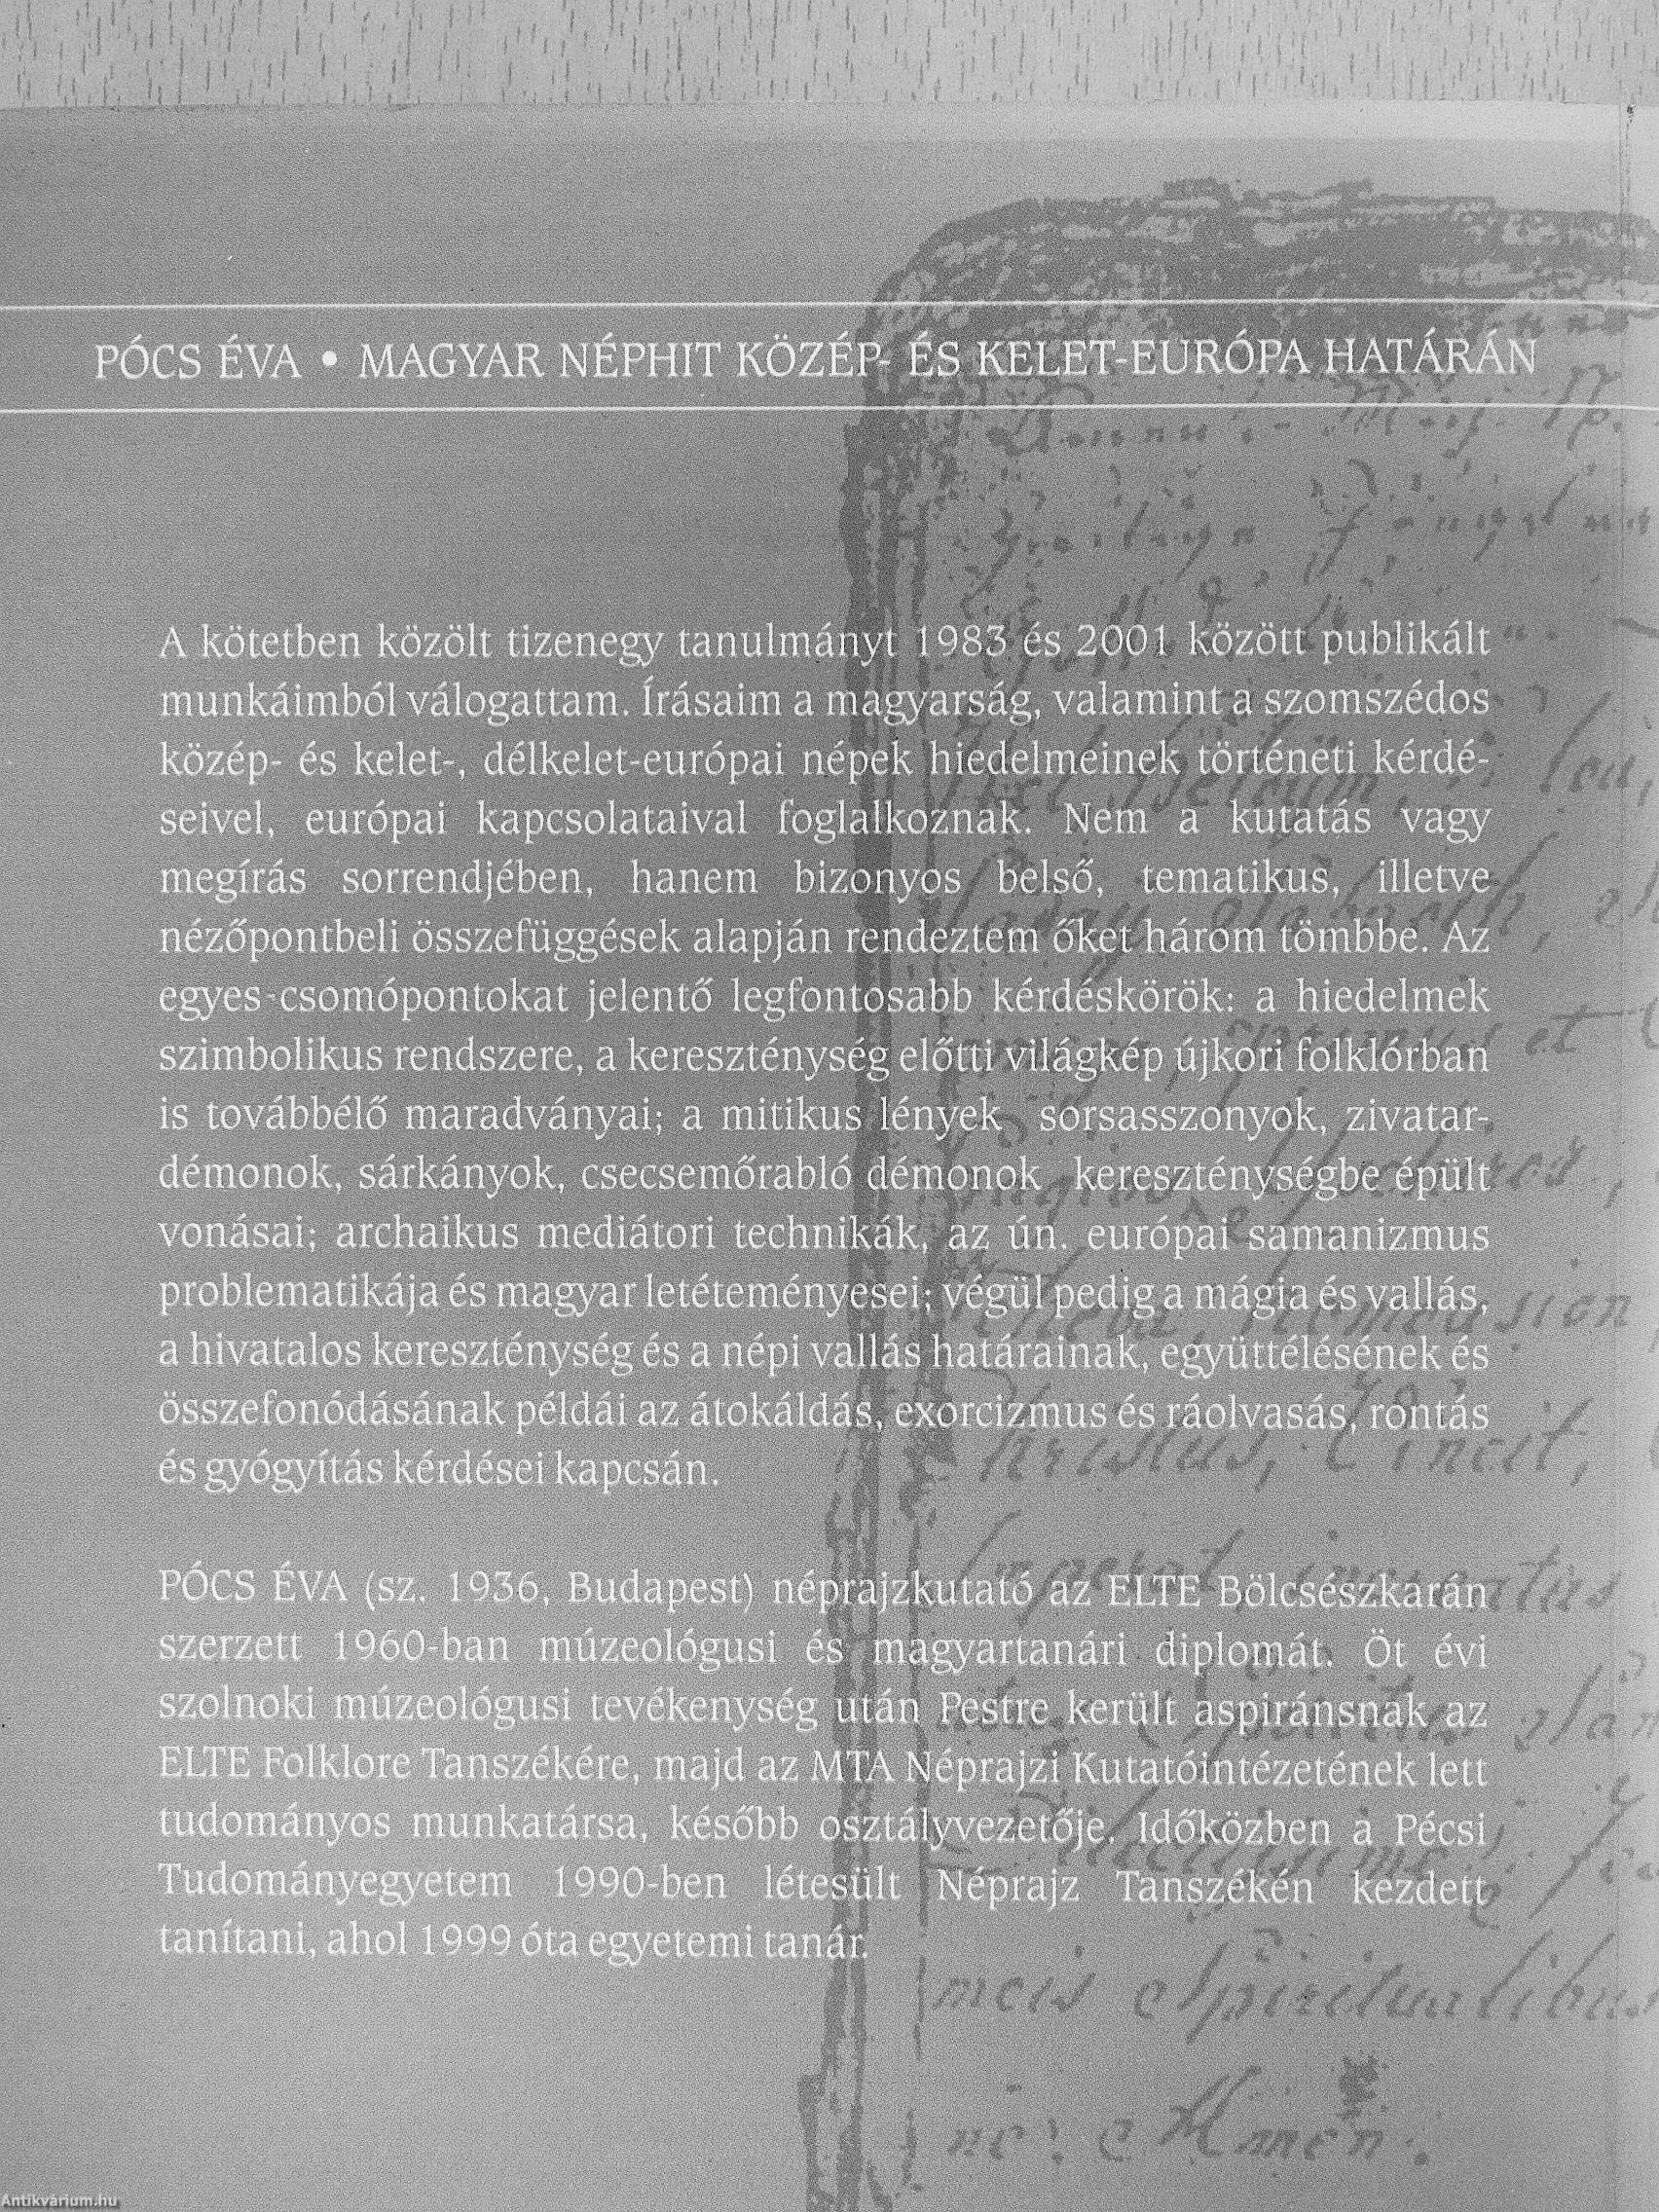 PÓCS ÉVA • MAGYAR NÉPHIT KÖZÉP- ÉS KELET-EURÓPA HATÁRÁN
A kötetben közölt tizenegy tanulmányt 1983 és 2001 között publikált
munkáimból válogattam. Írásaim a magyarság, valamint a szomszédos
közép- és kelet-, délkelet-európai népek hiedelmeinek történeti kérdé-
seivel, európai kapcsolataival foglalkoznak. Nem a kutatás vagy
megírás sorrendjében, hanem bizonyos belső, tematikus, illetve
nézőpontbeli összefüggések alapján rendeztem őket három tömbbe. Az
egyes csomópontokat jelentő legfontosabb kérdéskörök: a hiedelmek
szimbolikus rendszere, a kereszténység előtti világkép újkori folklórban
is továbbélő maradványai; a mitikus lények sorsasszonyok, zivatar-
démonok, sárkányok, csecsemőrabló démonok kereszténységbe épült
vonásai; archaikus mediátori technikák, az ún. európai samanizmus
problematikája és magyar letéteményesei; végül pedig a mágia és vallás,
a hivatalos kereszténység és a népi vallás határainak, együttélésének és
összefonódásának példái az átokáldás, exorcizmus és ráolvasás, rontás
és gyógyítás kérdései kapcsán.
PÓCS ÉVA (sz. 1936, Budapest) néprajzkutató az ELTE Bölcsészkarán
szerzett 1960-ban múzeológusi és magyartanári diplomát. Öt évi
szolnoki múzeológusi tevékenység után Pestre került aspiránsnak az
ELTE Folklore Tanszékére, majd az MTA Néprajzi Kutatóintézetének lett
tudományos munkatársa, később osztályvezetője. Időközben a Pécsi
Tudományegyetem 1990-ben létesült Néprajz Tanszékén kezdett
tanítani, ahol 1999 óta egyetemi tanár.
meis Spiritualibus
ne: Amen.
Antikvárium.hu